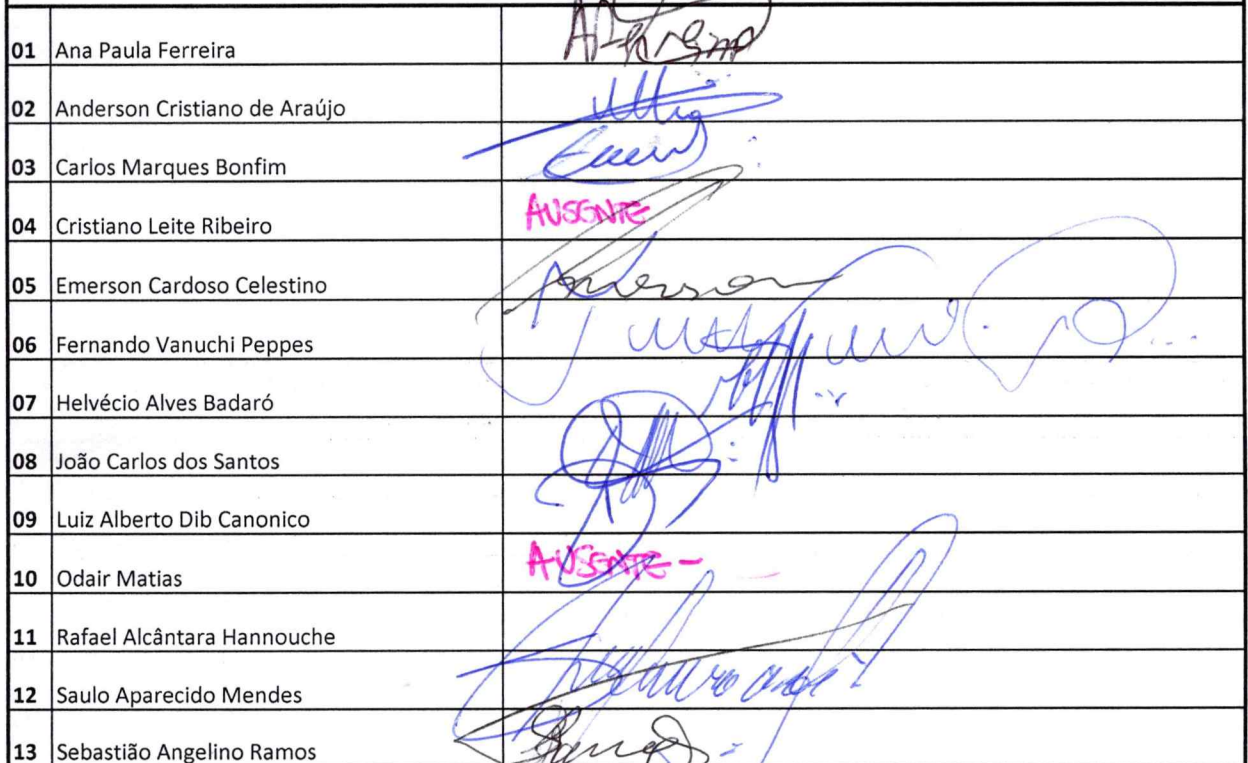 01 Ana Paula Ferreira
02 Anderson Cristiano de Araújo
03 Carlos Marques Bonfim
04 Cristiano Leite Ribeiro AUSENTE
05 Emerson Cardoso Celestino
06 Fernando Vanuchi Peppes
07 Helvécio Alves Badaró
08 João Carlos dos Santos
09 Luiz Alberto Dib Canonico
10 Odair Matias AUSENTE -
11 Rafael Alcântara Hannouche
12 Saulo Aparecido Mendes
13 Sebastião Angelino Ramos